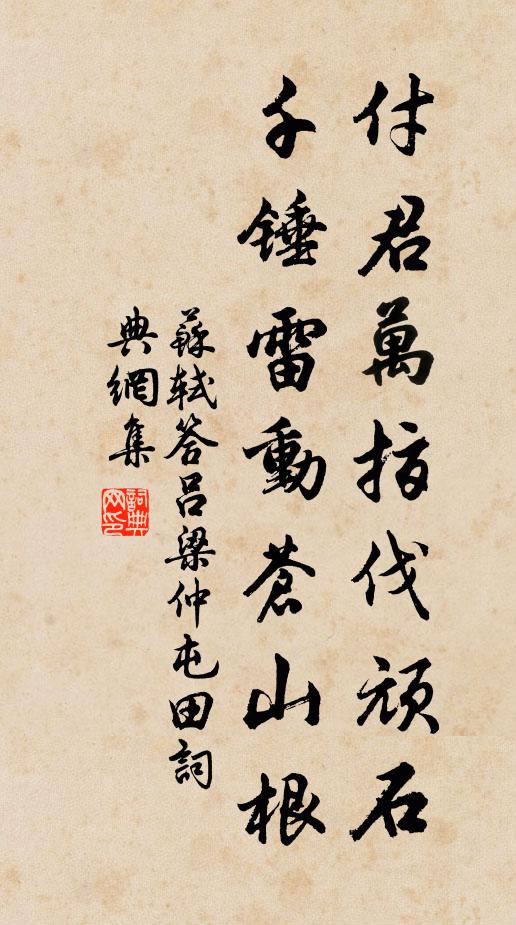 付君萬指伐頑石
千錘雷動蒼山根
蘇軾答呂梁仲屯田詞
典網集
詞典網印